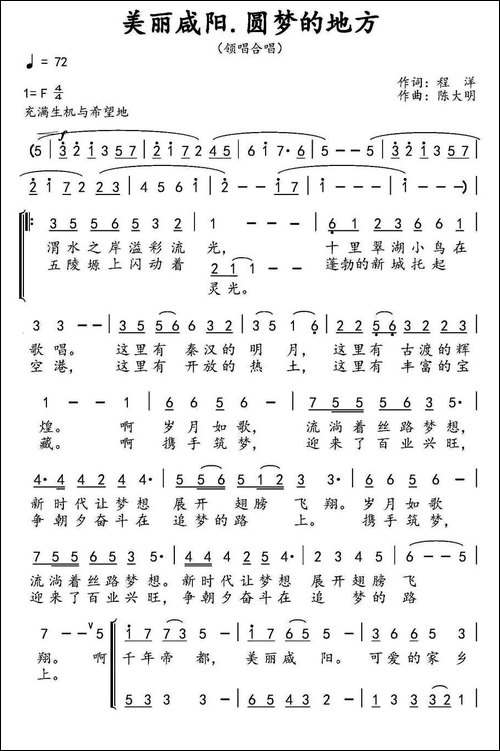 美丽咸阳.圆梦的地方
（领唱合唱）
♩= 72
1= F 4/4
作词：程 洋
作曲：陈大明
充满生机与希望地
(5 | 3 2 1 3 5 7 | 2 1 7 2 1 2 | 4 4 5 · | 6 1 7 · 6 | 5 - - 5 | 3 2 1 3 5 7 |
2 1 7 2 | 2 2 3 · | 4 5 6 1 | 2 - - 2 | 1 7 - - | 1 - - - )
3 5 5 6 5 3 2 | 1 - - - | 6 1 2 3 6 6 1 |
渭水之岸溢彩流 光， 十里翠湖小鸟在
五陵塬上闪动着 2 1 1 - 蓬勃的新城托起
灵光。
3 3 - - | 3 5 5 6 6 3 | 3 5 1 · 6 | 2 2 2 5 6 3 2 |
歌唱。 这里有 秦汉的 明 月， 这里有 古渡的辉
空港， 这里有 开放的 热 土， 这里有 丰富的宝
1 - 1 - | 1 6 5 6 | 7 5 5 5 6 3 5 · |
煌。 啊 岁月如歌， 流淌着丝路梦想，
藏。 啊 携手筑梦， 迎来了百业兴旺，
4 4 4 2 4 2 4 · | 5 5 6 5 1 2 2 | 3 - - - | 3 6 6 5 |
新时代让梦想 展开 翅膀 飞 翔。岁月如歌
争朝夕奋斗在 追梦的路 上。 携手筑梦，
7 5 5 5 6 3 5 · | 4 4 4 2 4 5 6 · | 2 3 4 5 | 6 - - 5 |
流淌着丝路梦想。新时代让梦想 展开翅膀 飞
迎来了百业兴旺，争朝夕奋斗在 追 梦的路
7 - - ∨ 5 | 1 7 7 3 | 5 - - - | 1 7 6 5 | 5 - - - | 6 6 1 7 6 |
翔。 啊 千年帝 都， 美丽咸 阳。可爱的家乡
上。
5 3 4 3 | 3 - - - | 5 3 4 3 | 3 - - - | 1 3 3 2 1 |